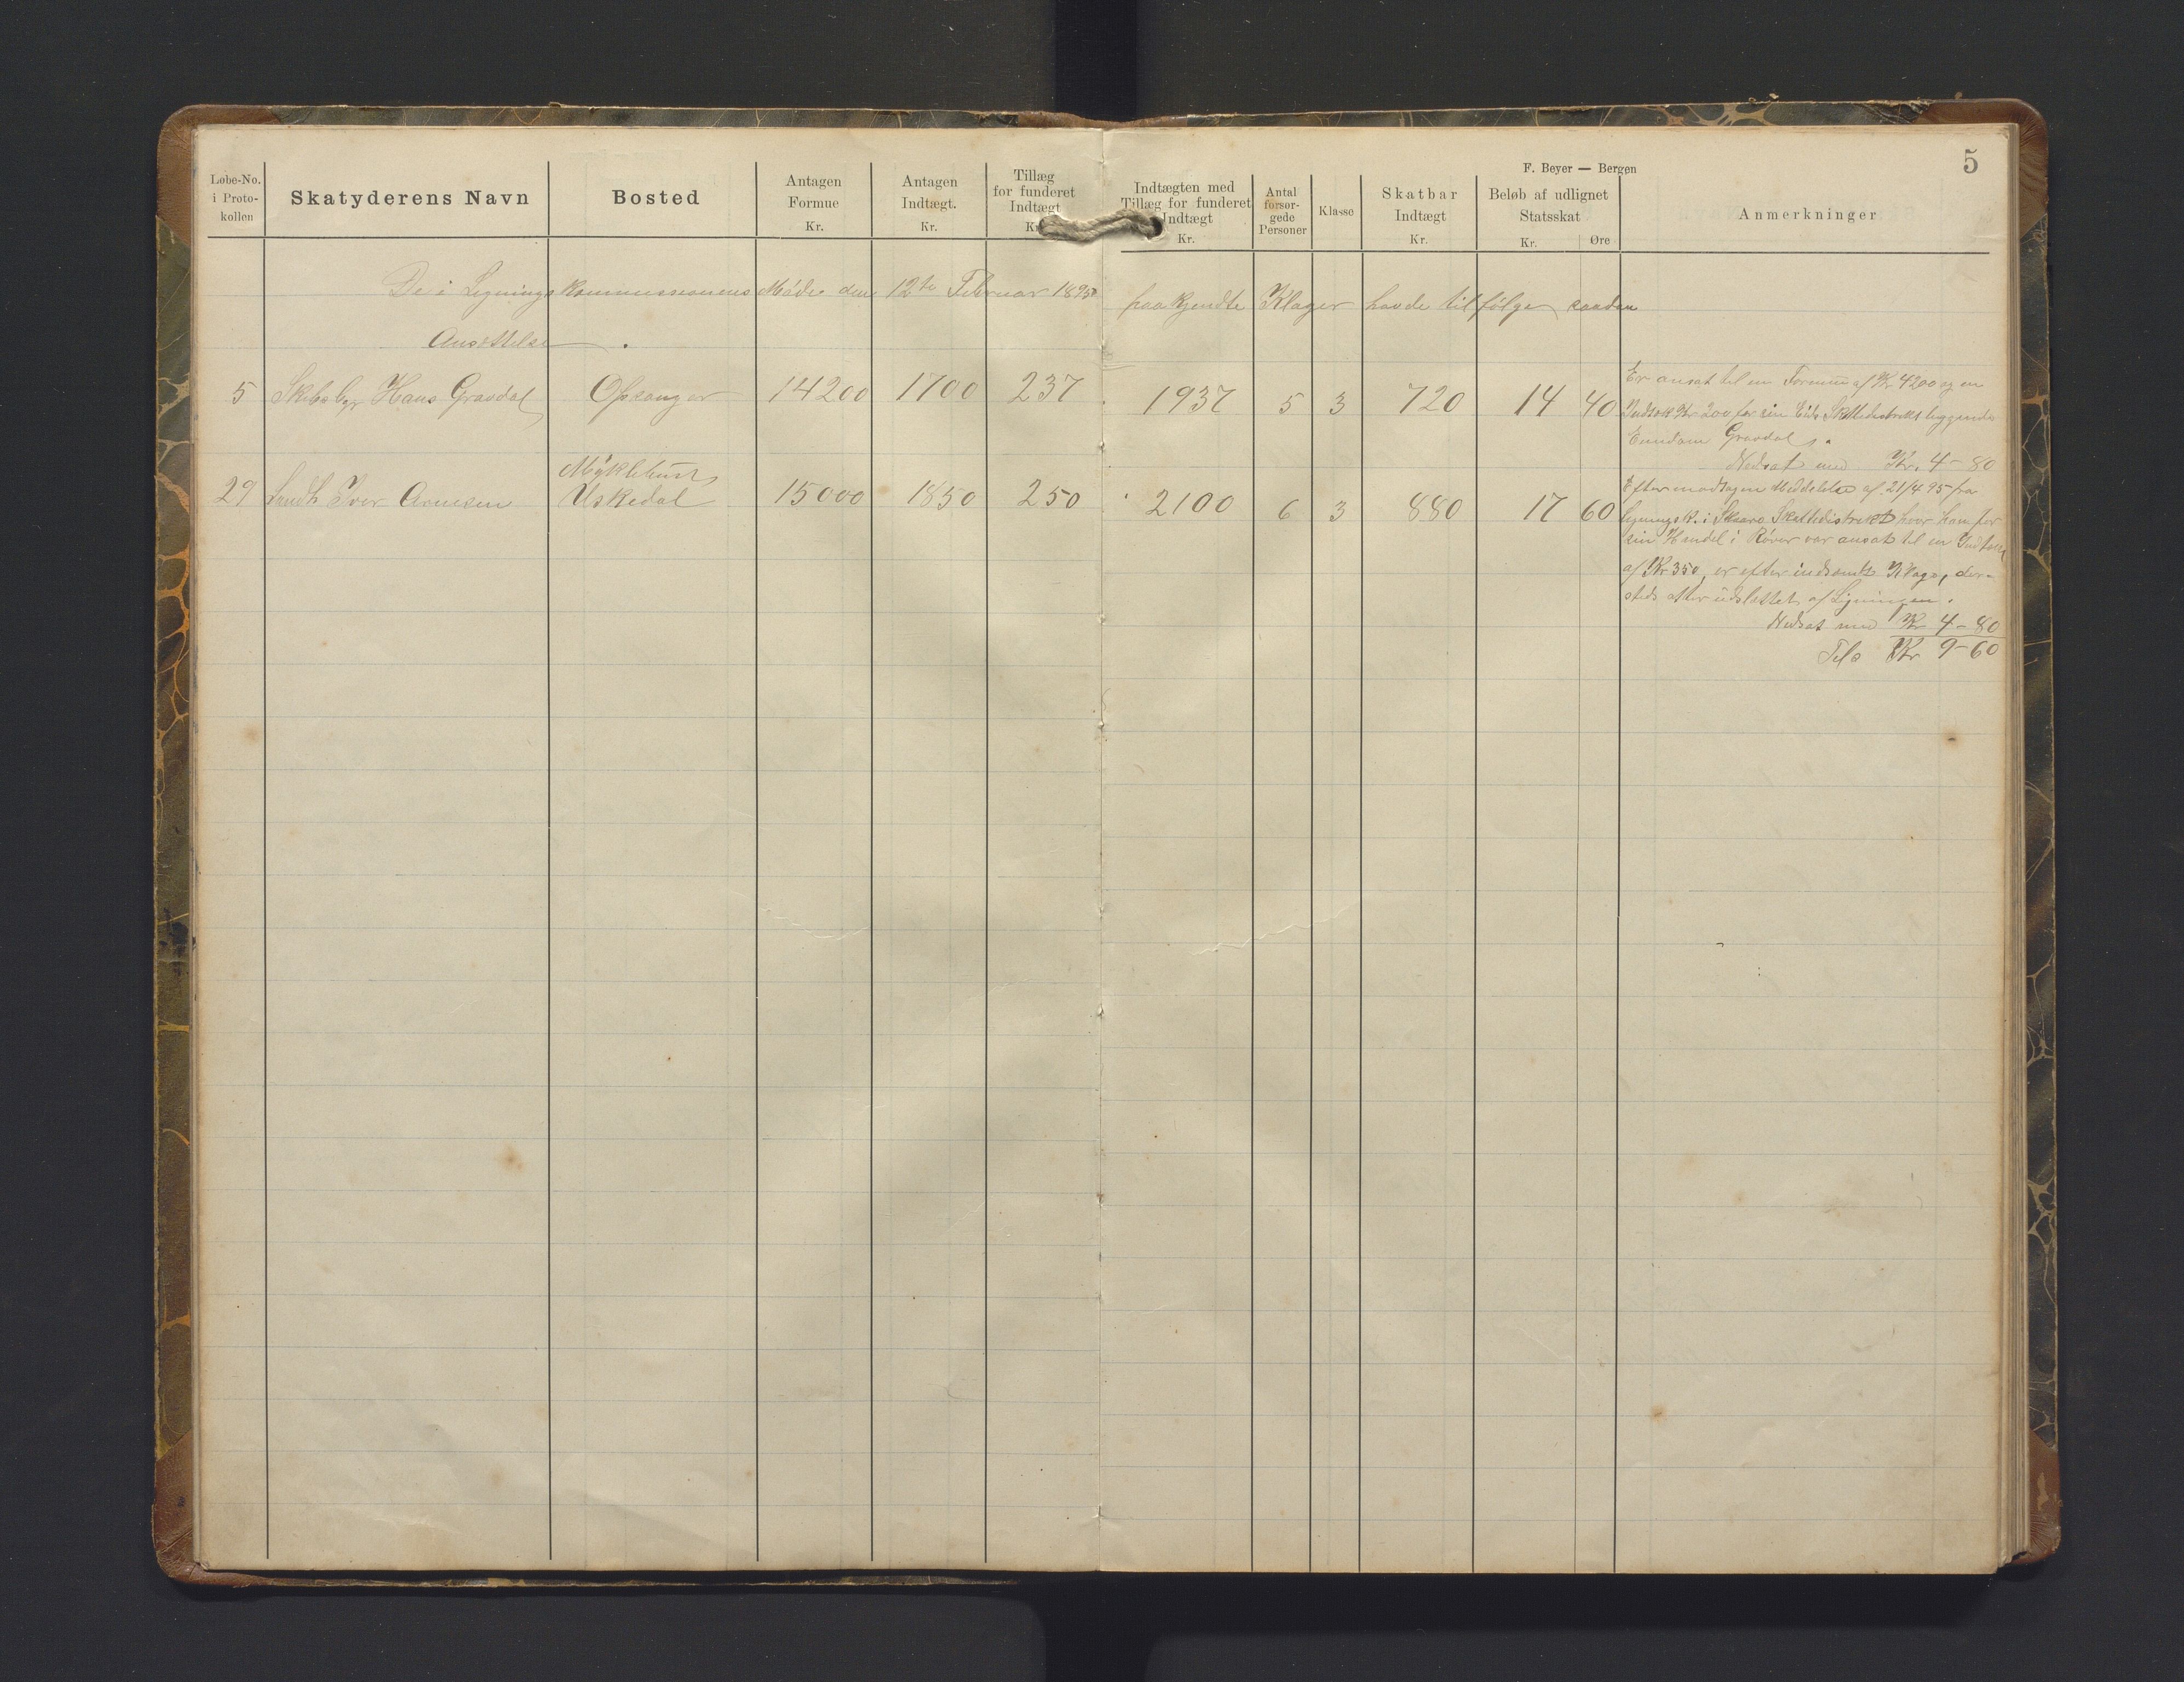 F. Beyer — Bergen
5
Løbe-No. i Proto-kollen | Skatyderens Navn | Bosted | Antagen Formue Kr. | Antagen Indtægt. Kr. | Tillæg for funderet Indtægt Kr. | Indtægten med Tillæg for funderet Indtægt Kr. | Antal forsør-gede Personer | Klasse | Skatbar Indtægt Kr. | Beløb af udlignet Statsskat Kr. Øre | Anmerkninger
De i Ligningskommissionens Møde den 12te Februar 1895 paakjendte Klager havde tilfølge saadan
Ansættelse.
5 Skibsbgr Hans Gravdal Opsanger 14200 1700 237 1937 5 3 720 14 40
Er ansat til en Formue af Kr 4200 og en
Indtægt Kr 200 for sin Eids Skattedistrikt liggende
Eiendom Gravdal.
Nedsat med Kr. 4-80
Myklebust
29 Landh Iver Arnesen Uskedal 15000 1850 250 2100 6 3 880 17 60
Efter modtagen Meddelelse af 21/4 95 fra
Ligningsk. i Skaare Skattedistrikt hvor han for
sin Handel i Røvær var ansat til en Indtægt
af Kr 350, er efter indsendt Klage, der-
steds atter udslettet af Ligningen.
Nedsat med Kr 4-80
Tils Kr 9-60